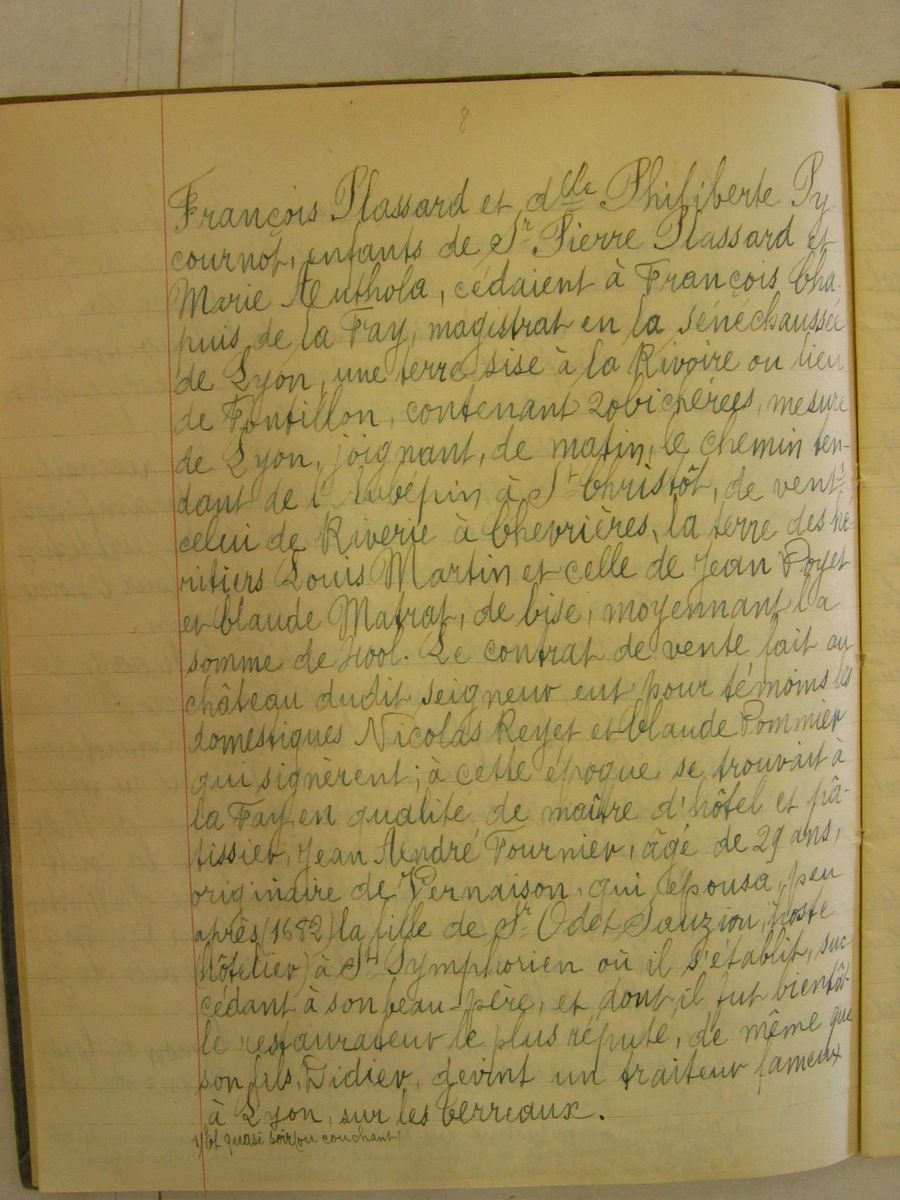 8
François Plassard et dlle Philiberte Py-
cournot, enfants de Sr Pierre Plassard et
Marie Anthola, cédaient à François Cha-
puis de la Fay, magistrat en la sénéchaussée
de Lyon, une terre sise à la Rivoire ou lieu
de Fontillon, contenant 20 bicherées, mesure
de Lyon, joignant, de matin, le chemin ten-
dant de l'Aubépin à St Christôt, de vent 1)
celui de Riverie à Chevrières, la terre des hé-
ritiers Louis Martin et celle de Jean Poyet
et Claude Matrat, de bise, moyennant la
somme de
Le contrat de vente fait au
château dudit seigneur eut pour témoins les
domestiques Nicolas Reyet et Claude Pommier
qui signèrent; à cette époque se trouvait à
la Fay, en qualité de maître d'hôtel et pâ-
tissier, Jean André Fournier, âgé de 29 ans,
originaire de Vernaison, qui épousa, peu
après (1682) la fille de Sr Odet Sauzion, hoste
(hôtelier) à St Symphorien où il s'établit, suc-
cédant à son beau-père, et dont il fut bientôt
le restaurateur le plus réputé, de même que
son fils, Didier, devint un traiteur fameux
à Lyon, sur les Terreaux.
1) Et quasi soir (ou couchant)